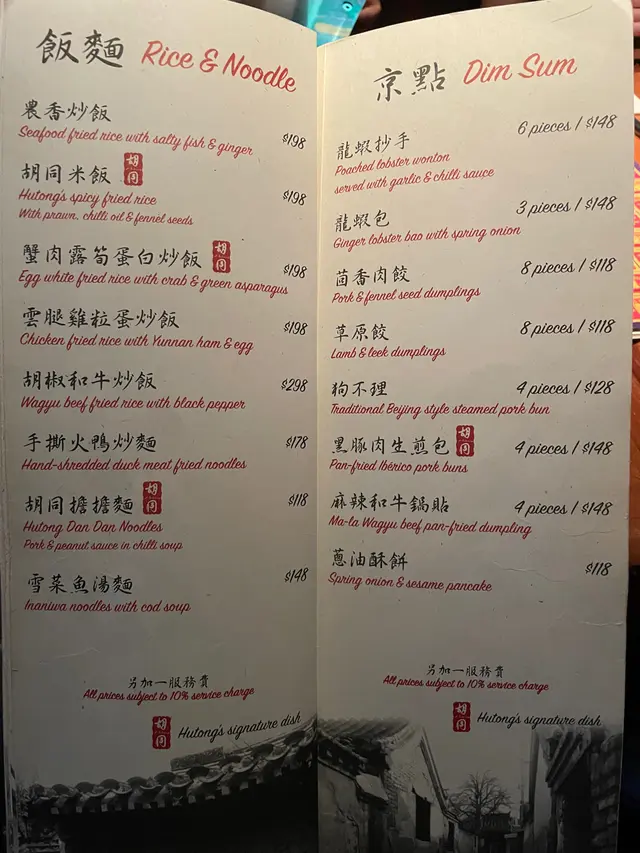 飯麵 Rice & Noodle
農香炒飯
Seafood fried rice with salty fish & ginger $198
胡同米飯 胡同
Hutong's spicy fried rice $198
With prawn, chilli oil & fennel seeds
蟹肉露筍蛋白炒飯 胡同
Egg white fried rice with crab & green asparagus $198
雲腿雞粒蛋炒飯
Chicken fried rice with Yunnan ham & egg $198
胡椒和牛炒飯
Wagyu beef fried rice with black pepper $298
手撕火鴨炒麵
Hand-shredded duck meat fried noodles $178
胡同擔擔麵 胡同
Hutong Dan Dan Noodles $118
Pork & peanut sauce in chilli soup
雪菜魚湯麵
Inaniwa noodles with cod soup $148
另加一服務費
All prices subject to 10% service charge
胡同 Hutong's signature dish
京點 Dim Sum
龍蝦抄手 6 pieces / $148
Poached lobster wonton
served with garlic & chilli sauce
龍蝦包 3 pieces / $148
Ginger lobster bao with spring onion
茴香肉餃 8 pieces / $118
Pork & fennel seed dumplings
草原餃 8 pieces / $118
Lamb & leek dumplings
狗不理 4 pieces / $128
Traditional Beijing style steamed pork bun
黑豚肉生煎包 胡同 4 pieces / $148
Pan-fried Ibérico pork buns
麻辣和牛鍋貼 4 pieces / $148
Ma-la Wagyu beef pan-fried dumpling
蔥油酥餅 $118
Spring onion & sesame pancake
另加一服務費
All prices subject to 10% service charge
胡同 Hutong's signature dish